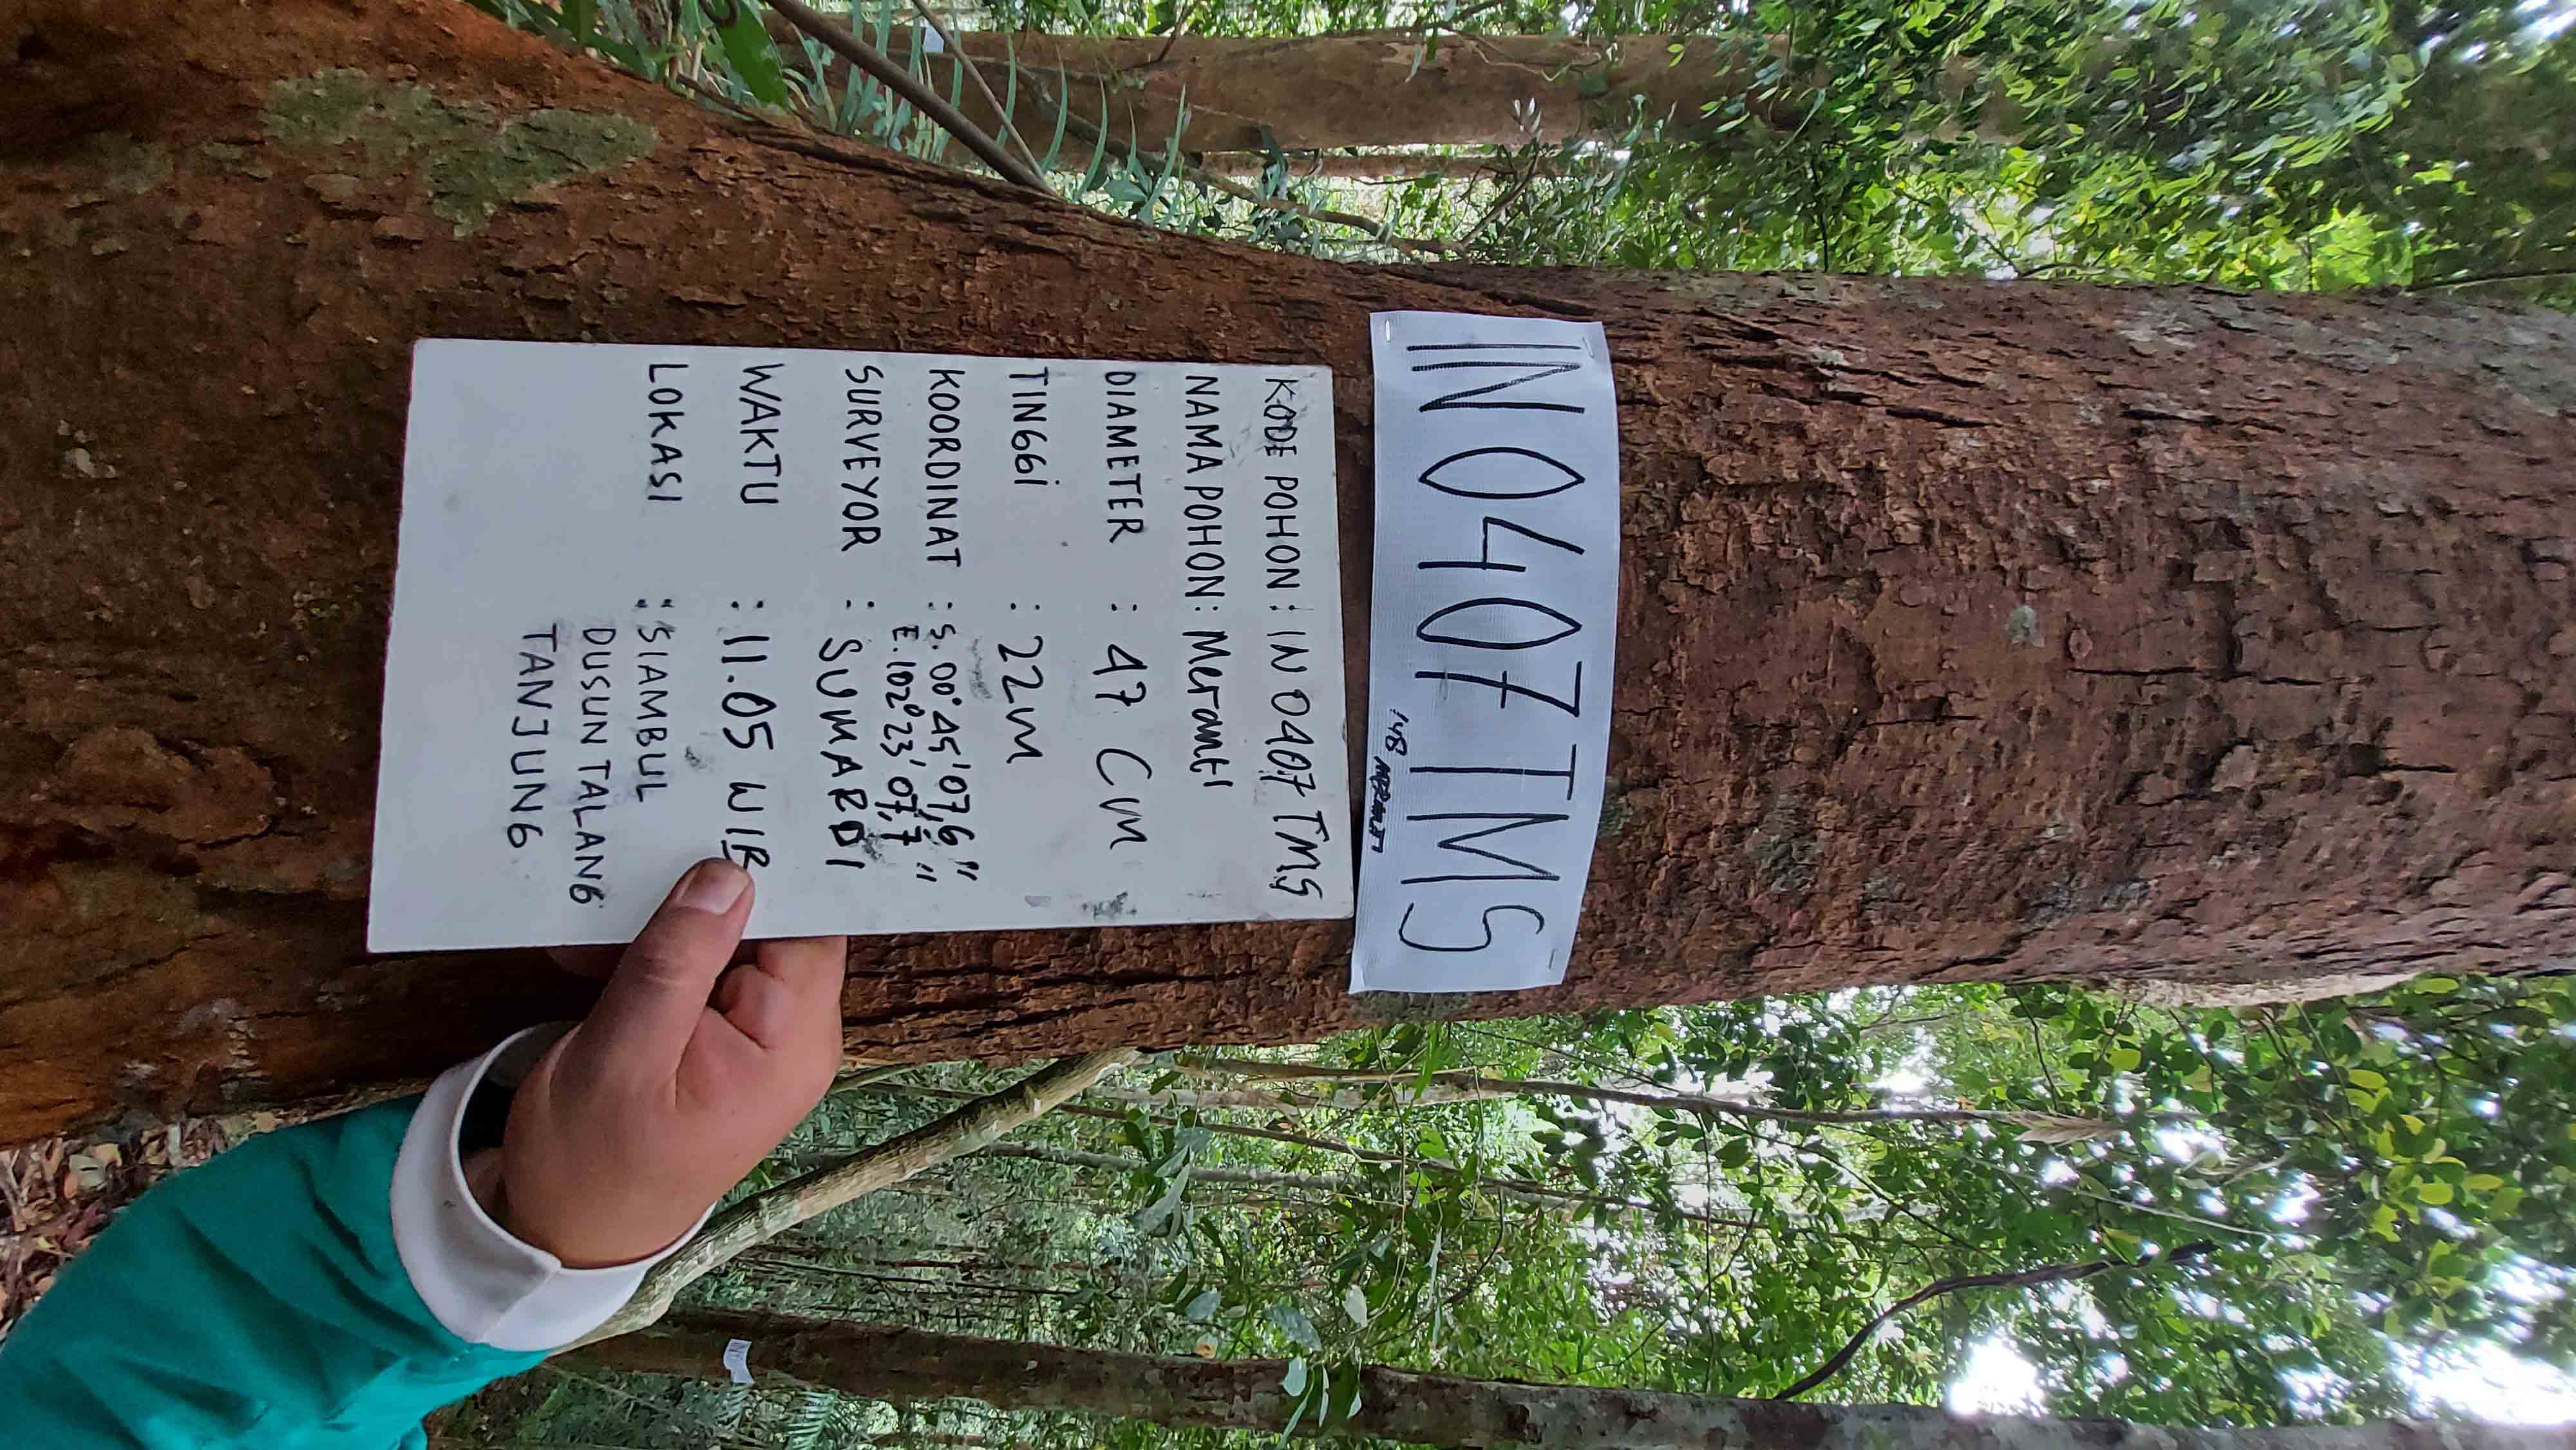 IN 0407 TMS
148 MERANTI
KODE POHON : IN 0407 TMS
NAMA POHON : Meranti
DIAMETER : 47 Cm
TINGGI : 22m
KOORDINAT : S. 00° 45' 07,6"
E. 102° 23' 07,7"
SURVEYOR : SUMARDI
WAKTU : 11.05 WIB
LOKASI : SIAMBUL
DUSUN TALANG
TANJUNG